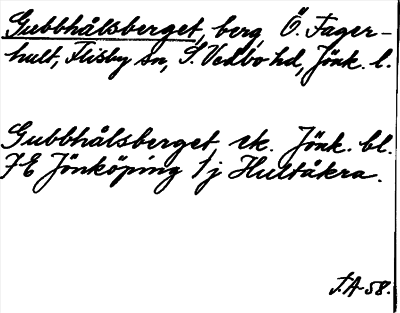 Gubbhålsberget, berg, Ö. Fager-
hult, Flisby sn, S. Vedbo hd, Jönk. l.
Gubbhålsberget, ek. Jönk. bl.
7E Jönköping 1j Hultåkra.
J.A 58.